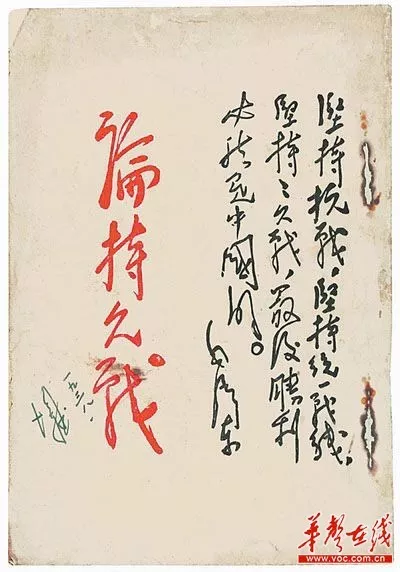 堅持抗戰，堅持統一戰綫，
堅持〻久戰，最後勝利
必然是中國的。
毛澤東
論持久戰。
華聲在线
www.voc.com.cn